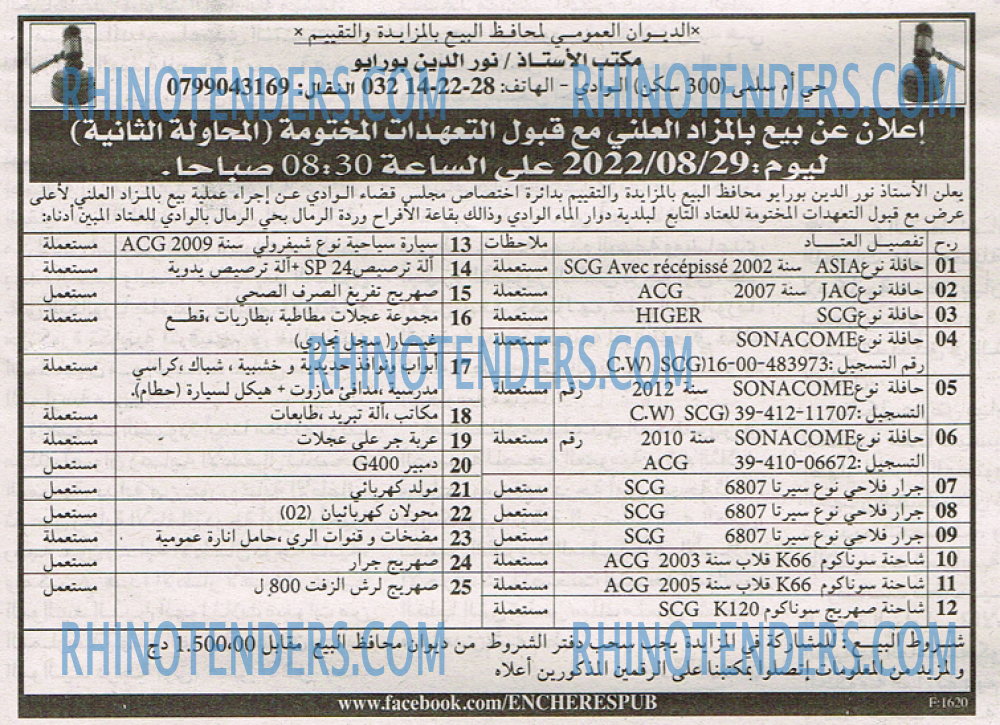 ×الديوان العمومي لمحافظ البيع بالمزايدة والتقييم ×
مكتب الأستاذ/ نور الدين بورايو
حي أم سلمى (300 سكن) الوادي - الهاتف: 28-22-14 032 النقال: 0799043169
إعلان عن بيع بالمزاد العلني مع قبول التعهدات المختومة (المحاولة الثانية)
ليوم: 2022/08/29 على الساعة 08:30 صباحا.
يعلن الأستاذ نور الدين بورايو محافظ البيع بالمزايدة والتقييم بدائرة اختصاص مجلس قضاء الوادي عن إجراء عملية بيع بالمزاد العلني لأعلى
عرض مع قبول التعهدات المختومة للعتاد التابع لبلدية دوار الماء الوادي وذلك بقاعة الأفراح وردة الرمال بحي الرمال بالوادي للعتاد المبين أدناه:
ر.ح تفصيل العتاد ملاحظات
01 حافلة نوع ASIA سنة 2002 SCG Avec récépissé مستعملة
02 حافلة نوع JAC سنة 2007 ACG مستعملة
03 حافلة نوع SCG HIGER مستعملة
04 حافلة نوع SONACOME مستعملة
رقم التسجيل: 16-00-483973 (C.W) SCG
05 حافلة نوع SONACOME سنة 2012 رقم مستعملة
التسجيل: 39-412-11707 (C.W) SCG
06 حافلة نوع SONACOME سنة 2010 رقم مستعملة
التسجيل: 39-410-06672 ACG
07 جرار فلاحي نوع سيرتا 6807 SCG مستعمل
08 جرار فلاحي نوع سيرتا 6807 SCG مستعمل
09 جرار فلاحي نوع سيرتا 6807 SCG مستعمل
10 شاحنة سوناكوم K66 قلاب سنة 2003 ACG مستعملة
11 شاحنة سوناكوم K66 قلاب سنة 2005 ACG مستعملة
12 شاحنة صهريج سوناكوم SCG K120 مستعملة
13 سيارة سياحية نوع شيفرولي سنة 2009 ACG مستعملة
14 آلة ترصيص SP 24 +آلة ترصيص يدوية مستعملة
15 صهريج تفريغ الصرف الصحي مستعمل
16 مجموعة عجلات مطاطية ،بطاريات ،قطع مستعملة
غيار( سجل تجاري)
17 أبواب ونوافذ حديدية و خشبية ، شباك ،كراسي مستعملة
مدرسية ،مدافئ مازوت + هيكل لسيارة (حطام).
18 مكاتب ،آلة تبريد ،طابعات مستعملة
19 عربة جر على عجلات مستعملة
20 دمبير G400 مستعمل
21 مولد كهربائي مستعمل
22 محولان كهربائيان (02) مستعمل
23 مضخات و قنوات الري ،حامل انارة عمومية مستعملة
24 صهريج جرار مستعمل
25 صهريج لرش الزفت 800 ل مستعمل
شروط البيع : للمشاركة في المزايدة يجب سحب دفتر الشروط من ديوان محافظ البيع مقابل 1.500,00 دج
وللمزيد من المعلومات إتصلوا بمكتبنا على الرقمين المذكورين أعلاه
www.facebook.com/ENCHERESPUB
F:1620
RHINOTENDERS.COM
RHINOTENDERS.COM
RHINOTENDERS.COM
RHINOTENDERS.COM
RHINOTENDERS.COM